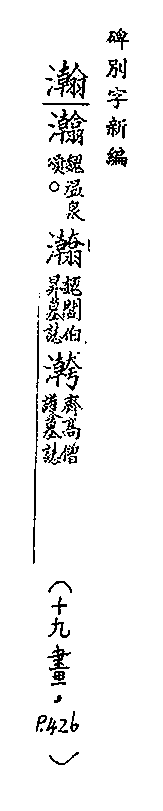 碑別字新編
瀚 瀚 魏温泉頌。 瀚 魏閻伯昇墓誌 齊高僧護墓誌
（十九畫，P.426）